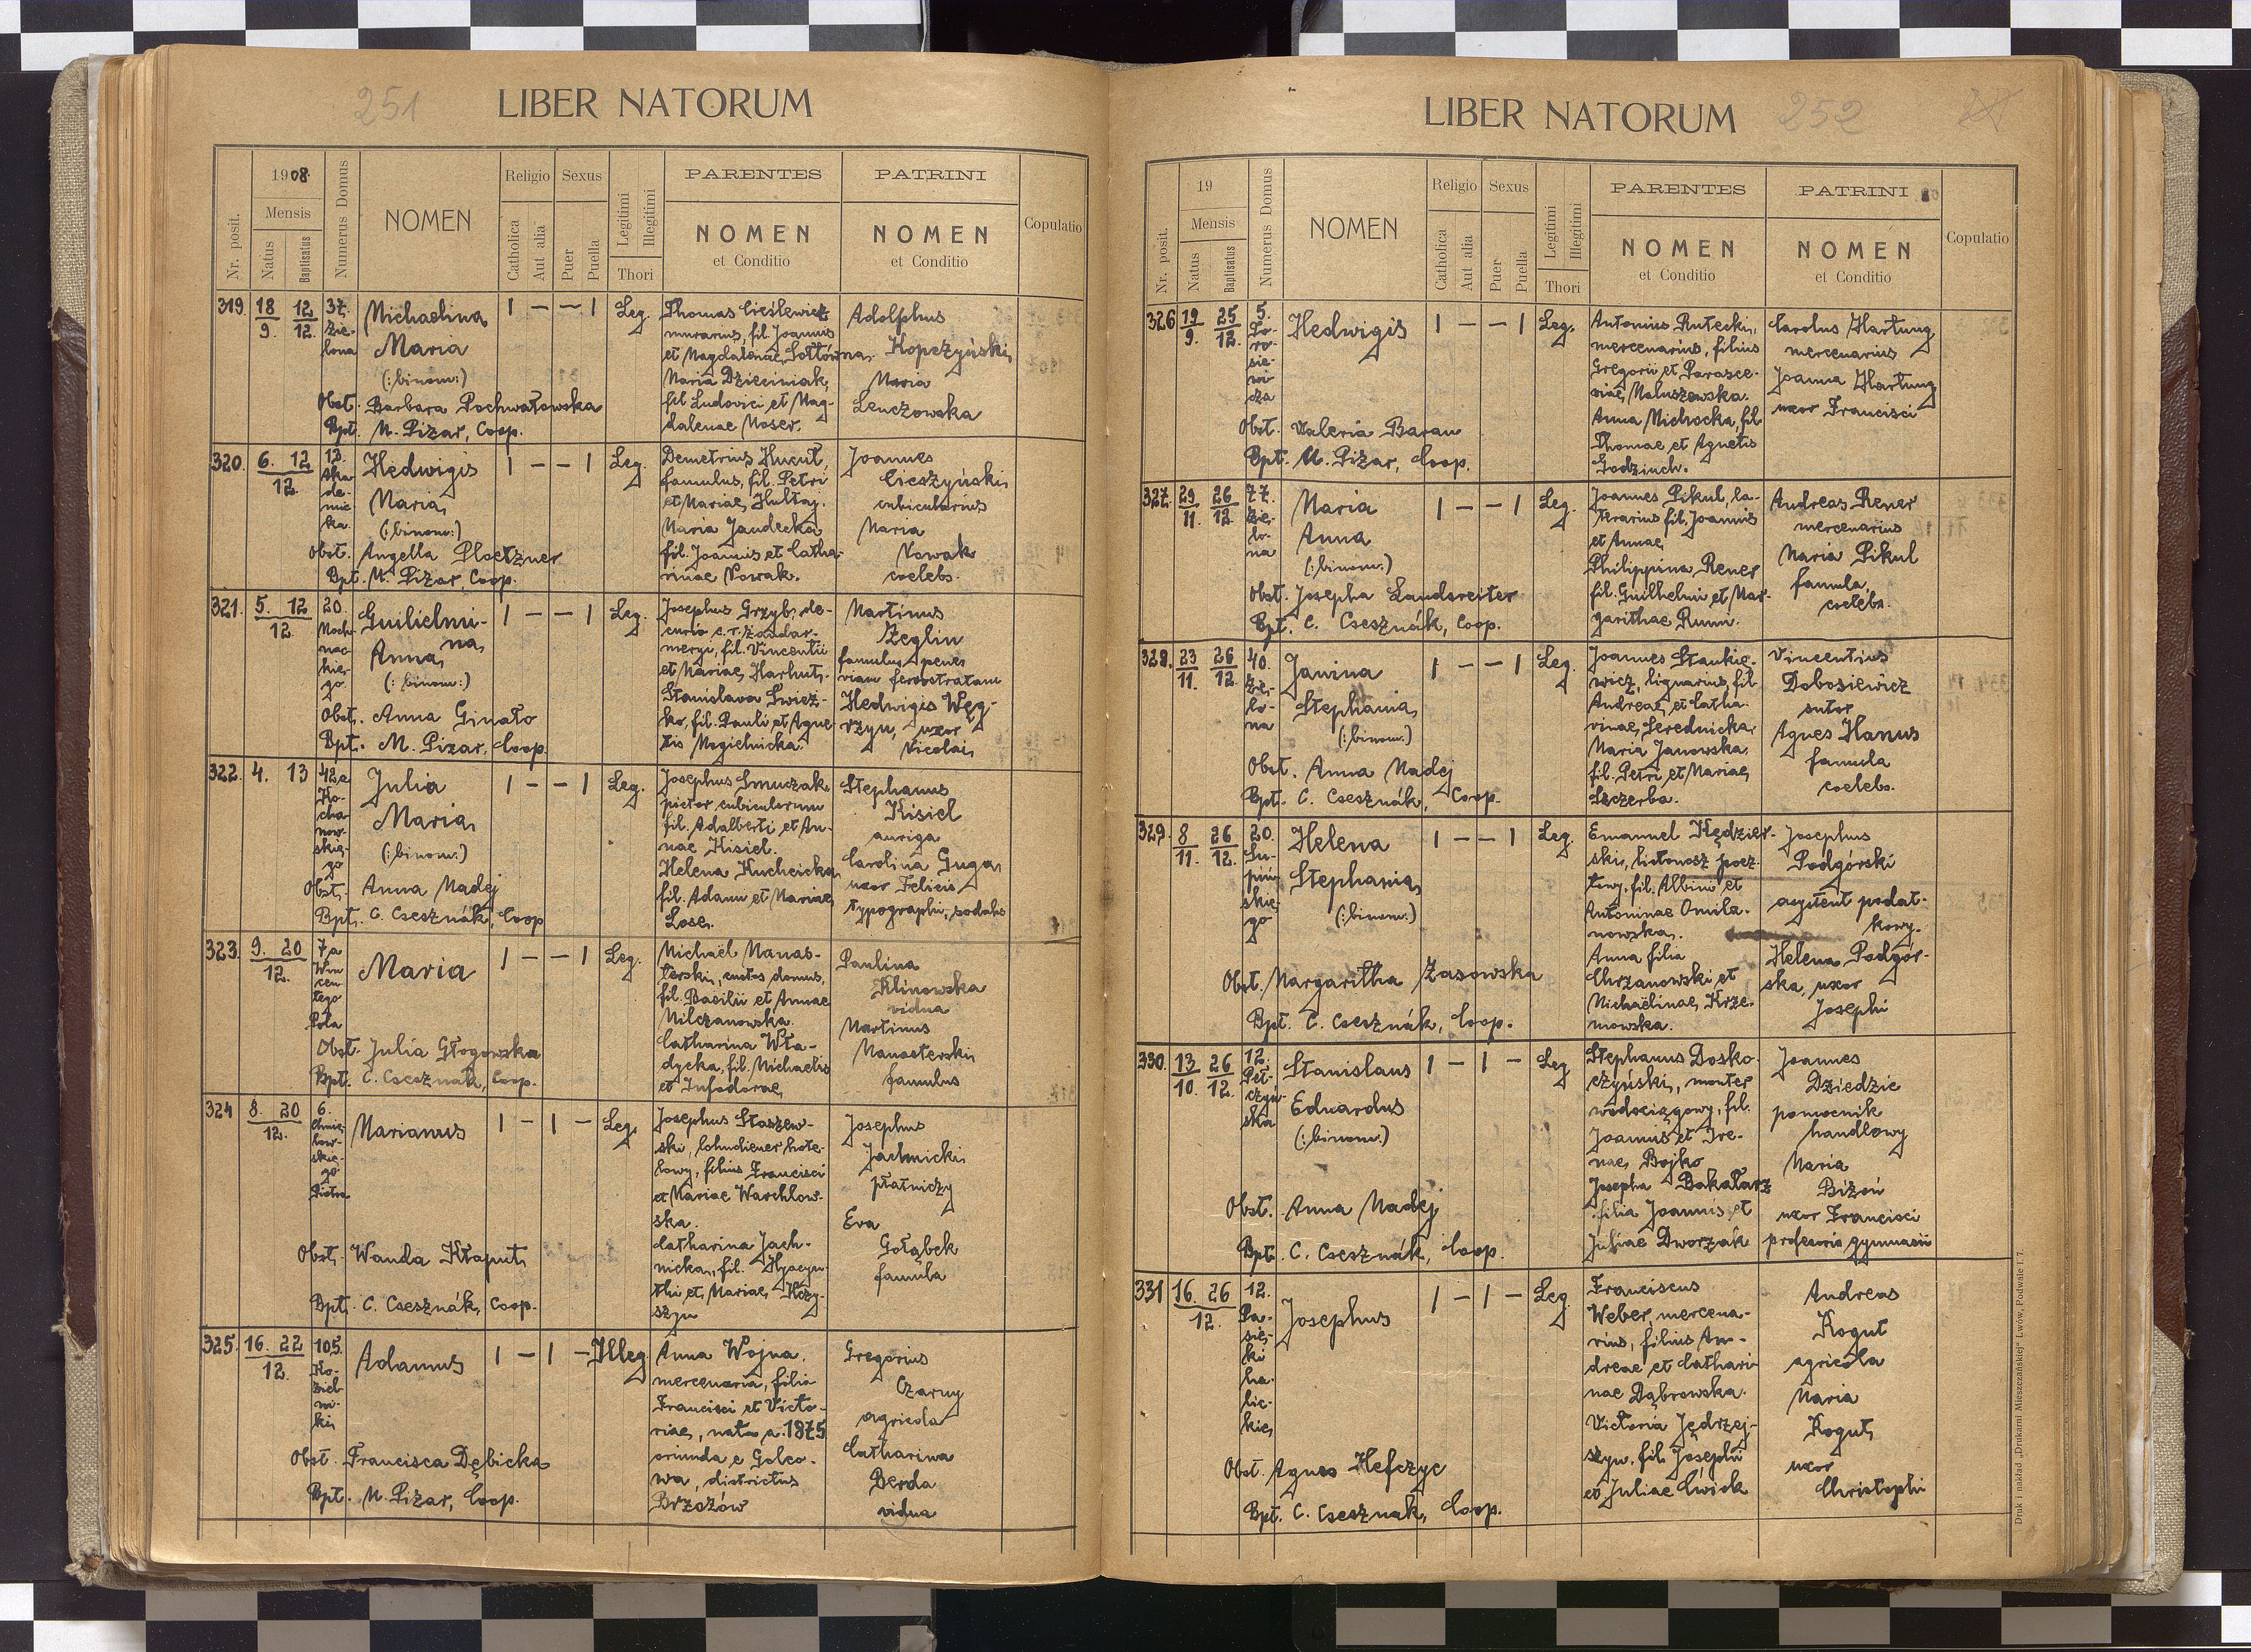 251
LIBER NATORUM
Nr. posit.
1908.
Mensis
Natus
Baptisatus
Numerus Domus
NOMEN
Religio
Catholica
Aut alia
Sexus
Puer
Puella
Legitimi
Illegitimi
Thori
PARENTES
NOMEN
et Conditio
PATRINI
NOMEN
et Conditio
Copulatio
319.
18 12
9. 12.
37.
Zie-
lona
Michaelina
Maria
(: binom:)
Obst. Barbara Pochwałowska
Bpt. M. Piżar, Coop.
1 — — 1
Leg.
Thomas Cieślewicz
murarius, fil. Joannis
et Magdalenae Sottówna.
Maria Dzieciniak,
fil. Ludovici et Mag-
dalenae Moser.
Adolphus
Kopczyński,
Maria
Lenczowska
320.
6. 12
12.
13.
Aka
de-
mic
ka.
Hedwigis
Maria
(: binom:)
Obst. Angella Ploetzner
Bpt. M. Piżar, Coop.
1 — — 1
Leg.
Demetrius Hucul,
famulus, fil. Petri
et Mariae Hultaj.
Maria Jandecka
fil. Joannis et Catha-
rinae Nowak.
Joannes
Cieszyński,
cubicularius
Maria
Nowak
coelebs.
321.
5. 12
12.
20.
Moch-
nac-
kie-
go
Guilielmi-
na,
Anna,
(: binom:)
Obst. Anna Ginato
Bpt. M. Piżar, Coop.
1 — — 1
Leg.
Josephus Grzyb, de-
curio c. r. żandar-
meryi, fil. Vincentii
et Mariae Harhut.
Stanislava Świez-
ko, fil. Pauli et Agne-
tis Mogielnicka.
Martinus
Żeglin
famulus penes
viam ferostratam
Hedwigis Węg-
rzyn, uxor
Nicolai,
322.
4. 13
42a
Ko-
cha
now-
skie-
go
Julia
Maria,
(: binom:)
Obst. Anna Madej
Bpt. C. Csesznák, Coop
1 — — 1
Leg.
Josephus Smuczak
pictor cubiculorum
fil. Adalberti et An-
nae Kisiel.
Helena Kucheicka,
fil. Adami et Mariae
Lose.
Stephanus
Kisiel
auriga
Carolina Guga,
uxor Felicis
typographi, sodalis
323.
9. 20
12.
7a
Win
cen
tego
Pola
Maria
Obst. Julia Głogowska
Bpt. C. Csesznák, Coop.
1 — — 1
Leg.
Michaël Manas-
terski, custos domus,
fil. Basilii et Annae
Milczanowska.
Catharina Wła-
dycka, fil. Michaelis
et Teodorae
Paulina
Klinowska
vidua
Martinus
Manasterski,
famulus
324
8. 20
12.
6.
Chmie
low-
skie-
go
Piotra
Marianus
Obst. Wanda Kłaput,
Bpt. C. Csesznák, Coop.
1 — 1 —
Leg.
Josephus Staszew-
ski, lohndiener hote-
lowy, filius Francisci
et Mariae Warchlow-
ska.
Catharina Jach-
nicka, fil. Hyacyn
thi et Mariae
szyn
Josephus
Jachnicki,
płatniczy
Eva
Gołąbek
famula
325.
16. 22
12.
105.
Ko-
ziel
ni-
ki,
Adamus
Obst. Francisca Dębicka
Bpt. M. Piżar, Coop.
1 — 1 —
Illeg.
Anna Wojna,
mercenaria, filia
Francisci et Victo-
riae, nata a. 1875
oriunda e Golco-
wa, districtus
Brzozów
Gregorius
Czarny
agricola
Catharina
Berda
vidua
252
LIBER NATORUM
Nr. posit.
19
Mensis
Natus
Baptisatus
Numerus Domus
NOMEN
Religio
Catholica
Aut alia
Sexus
Puer
Puella
Legitimi
Illegitimi
Thori
PARENTES
NOMEN
et Conditio
PATRINI
NOMEN
et Conditio
Copulatio
326
19 25
9. 12.
5.
To-
ro-
sie-
wi
cza
Hedwigis
Obst. Valeria Baran
Bpt. M. Piżar, Coop.
1 — — 1
Leg.
Antonius Rutecki,
mercenarius, filius
Gregorii et Parasce-
viae Maluszewska.
Anna Michocka, fil.
Thomae et Agnetis
Godziuch.
Carolus Hartung
mercenarius
Joanna Hartung
uxor Francisci
327.
29 26
11. 12
77.
Zie-
lo-
na
Maria
Anna
(: binom:)
Obst. Josepha Landsreiter
Bpt. C. Csesznák, Coop.
1 — — 1
Leg.
Joannes Pikul, la-
terarius fil. Joannis
et Annae,
Philippina Rener
fil. Guilhelmi et Mar-
garithae Rumm.
Andreas Rener
mercenarius
Maria Pikul
famula,
coelebs.
328.
23 26
11. 12.
40.
Zie-
lo-
na
Janina
Stephania,
(: binom:)
Obst. Anna Madej
Bpt. C. Csesznák, Coop.
1 — — 1
Leg.
Joannes Stankie-
wicz, lignarius, fil.
Andreae et Catha-
rinae Serednicka,
Maria Janowska,
fil. Petri et Mariae
Szczerba.
Vincentius
Dobosiewicz
sutor
Agnes Hanus
famula
coelebs.
329.
8 26
11. 12.
20.
Su-
piń
skie
go
Helena
Stephania,
(: binom:)
Obst. Margaritha Zasowska
Bpt. C. Csesznák, Coop.
1 — — 1
Leg.
Emanuel Kędzier-
ski, listonosz pocz-
towy, fil. Albini et
Antoninae Omila-
nowska.
Anna filia
Chrzanowski et
Michaëlinae Krze-
mowska.
Josephus
Podgórski
asystent podat-
kowy.
Helena Podgór-
ska, uxor
Josephi
330.
13 26
10. 12.
12.
Peł-
czyń-
ska
Stanislaus
Eduardus
(: binom:)
Obst. Anna Madej
Bpt. C. Csesznák, Coop.
1 — 1 —
Leg
Stephanus Dosko-
czyński, monter
wodociągowy, fil.
Joannis et Ire-
nae Bojko
Josepha Bakałarz
filia Joannis et
Juliae Dworzak
Joannes
Dziedzic
pomocnik
handlowy
Maria
Bizoń
uxor Francisci
profesoris gymnasii
331
16. 26
12.
12.
Pa-
sie-
ki
ha-
lic-
kie,
Josephus
Obst. Agnes Hefczyc
Bpt. C. Csesznák, Coop.
1 — 1 —
Leg.
Franciscus
Weber, mercena-
rius, filius An-
dreae et Cathari
nae Dąbrowska.
Victoria Jędrzej-
szyn, fil. Josephi
et Juliae Ćwiek
Andreas
Kogut
agricola
Maria
Kogut,
uxor
Christophi
Druk i nakład „Drukarni Mieszczańskiej" Lwów, Podwale l. 7.